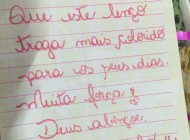 Que este lenço
traga mais colorido
para os seus dias.
Muita força e
Deus abençoe.